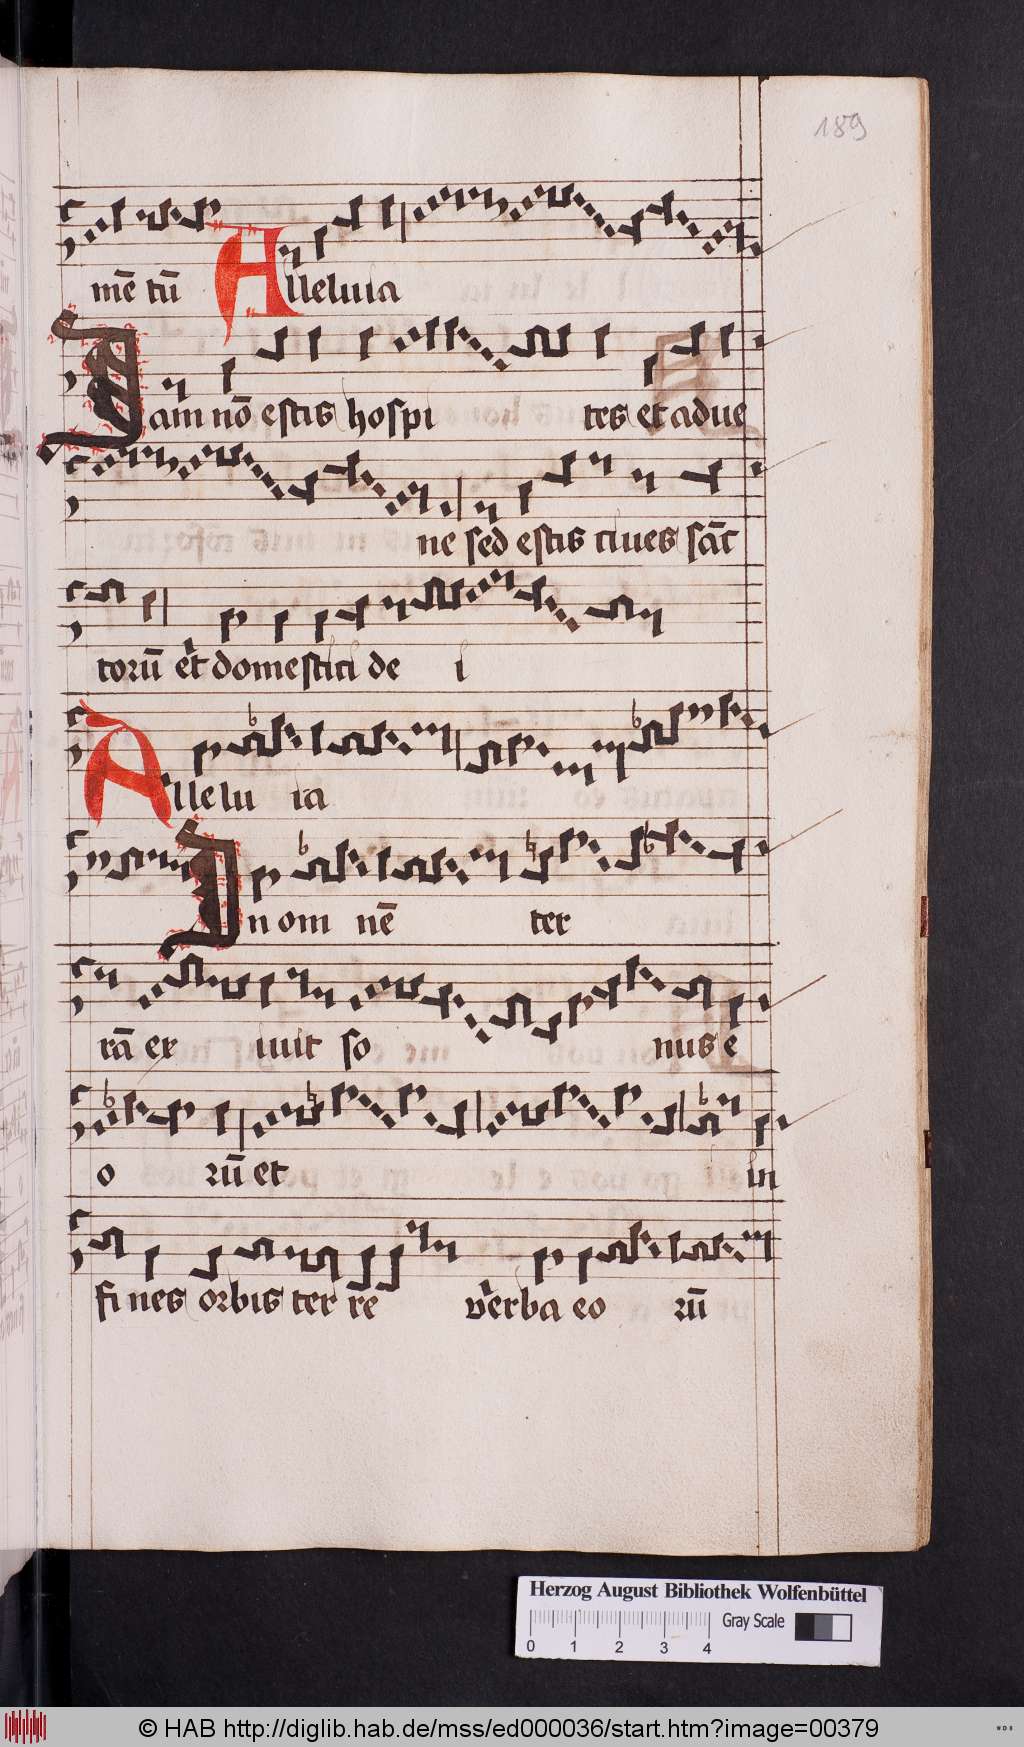 189
mē tū Alleluia
Iam nō estis hospi tes et adue
ne sed estis ciues sāc
torū et domestici de i
Allelu ia
In om nē ter
rā ex iuit so nus e
o rū et in
fi nes orbis ter re verba eo rū
Herzog August Bibliothek Wolfenbüttel
0 1 2 3 4 Gray Scale
© HAB http://diglib.hab.de/mss/ed000036/start.htm?image=00379